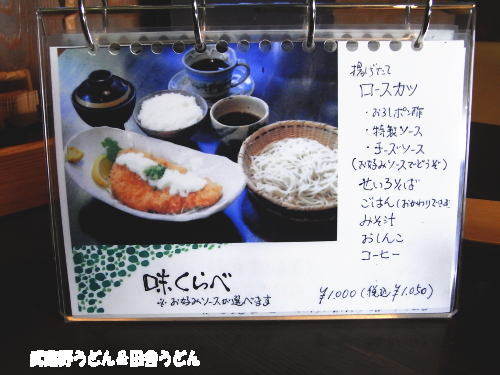 揚げたて
ロースカツ
・おろしポン酢
・特製ソース
・チーズソース
(お好みソースでどうぞ)
せいろそば
ごはん(おかわりできます)
みそ汁
おしんこ
コーヒー
味くらべ
※お好みソースが選べます
¥1.000(税込¥1.050)
武蔵野うどん&田舎うどん